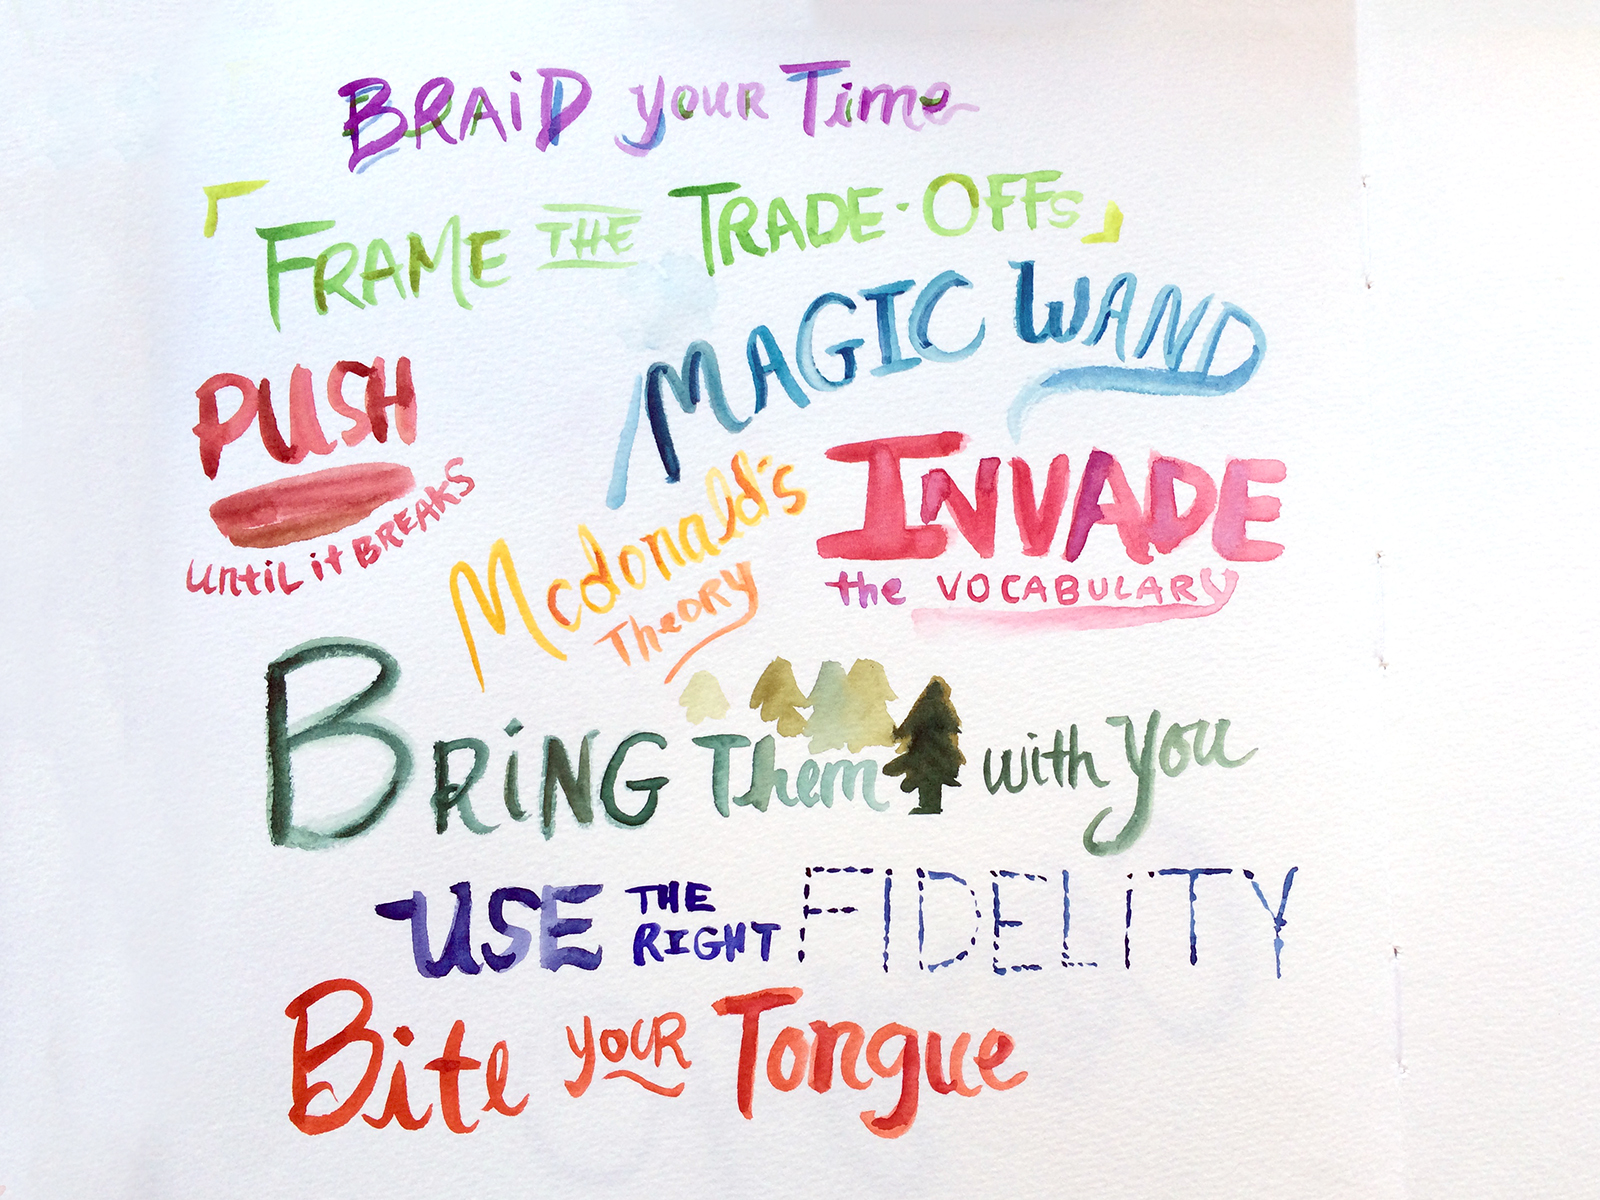 BRAiD your Time
「FRAME THE TRADE-OFFs」
MAGIC WAND
PUSH
until it BREAKS
Mcdonald's
Theory
INVADE
the VOCABULARY
BRiNG Them with you
USE THE
RIGHT FIDELITY
Bite your Tongue